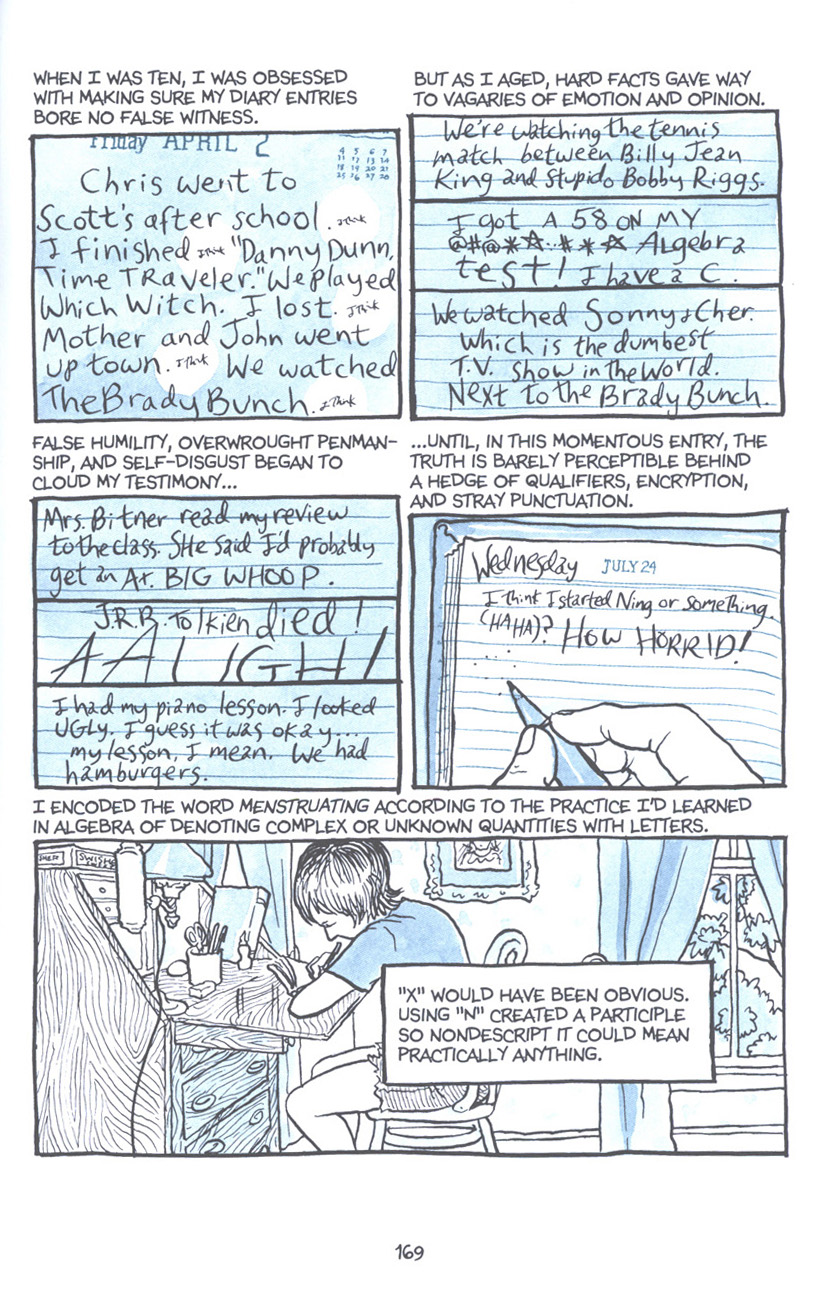 WHEN I WAS TEN, I WAS OBSESSED
WITH MAKING SURE MY DIARY ENTRIES
BORE NO FALSE WITNESS.
Friday APRIL 2
4 5 6 7
11 12 13 14
18 19 20 21
25 26 27 28
Chris went to
Scott's after school. I think
I finished I think "Danny Dunn,
Time TRaveler." We played
Which Witch. I lost. I think
Mother and John went
up town. I think We watched
The Brady Bunch. I think
BUT AS I AGED, HARD FACTS GAVE WAY
TO VAGARIES OF EMOTION AND OPINION.
We're watching the tennis
match between Billy Jean
King and stupido Bobby Riggs.
I got A 58 ON MY
@#@*☆..#**☆ Algebra
test! I have a C.
We watched Sonny & Cher.
Which is the dumbest
T.V. show in the World.
Next to the Brady Bunch.
FALSE HUMILITY, OVERWROUGHT PENMAN-
SHIP, AND SELF-DISGUST BEGAN TO
CLOUD MY TESTIMONY...
Mrs. Bitner read my review
to the class. SHe said I'd probably
get an A+. BIG WHOOP.
J.R.R. Tolkien died!
AAUGH!
I had my piano lesson. I looked
UGLY. I guess it was okay...
my lesson, I mean. We had
hamburgers.
...UNTIL, IN THIS MOMENTOUS ENTRY, THE
TRUTH IS BARELY PERCEPTIBLE BEHIND
A HEDGE OF QUALIFIERS, ENCRYPTION,
AND STRAY PUNCTUATION.
Wednesday JULY 24
I think I started Ning or something.
(HA HA)? HOW HORRID!
. . . .
I ENCODED THE WORD MENSTRUATING ACCORDING TO THE PRACTICE I'D LEARNED
IN ALGEBRA OF DENOTING COMPLEX OR UNKNOWN QUANTITIES WITH LETTERS.
"X" WOULD HAVE BEEN OBVIOUS.
USING "N" CREATED A PARTICIPLE
SO NONDESCRIPT IT COULD MEAN
PRACTICALLY ANYTHING.
169